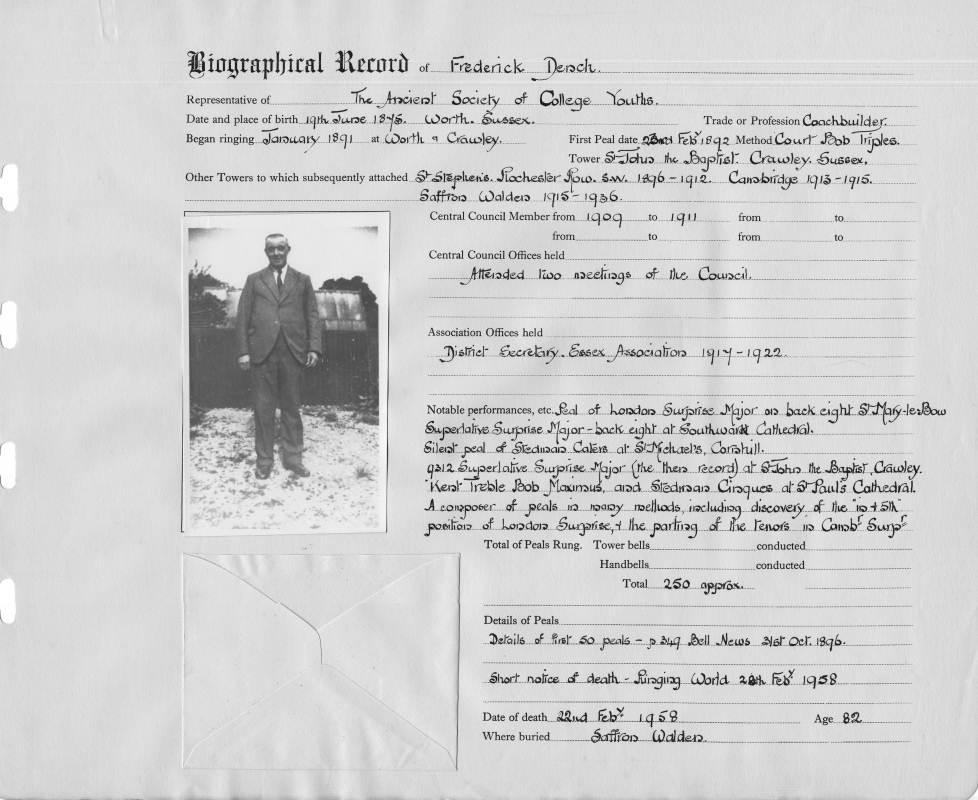 Biographical Record of Frederick Dench.
Representative of The Ancient Society of College Youths.
Date and place of birth 19th June 1875. Worth. Sussex. Trade or Profession Coachbuilder.
Began ringing January 1891 at Worth & Crawley. First Peal date Feby 1892 Method Court Bob Triples.
Tower St John the Baptist. Crawley. Sussex.
Other Towers to which subsequently attached St Stephen's. Rochester Row. S.W. 1896-1912. Cambridge 1913-1915.
Saffron Walden 1915-1936.
Central Council Member from 1909 to 1911 from to
from to from to
Central Council Offices held
Attended two meetings of the Council.
Association Offices held
District Secretary. Essex Association 1917-1922.
Notable performances, etc. Peal of London Surprise Major on back eight St Mary-le-Bow
Superlative Surprise Major - back eight at Southwark Cathedral.
Silent peal of Stedman Caters at St Michael's, Cornhill.
9312 Superlative Surprise Major (the then record) at St John the Baptist, Crawley.
Kent Treble Bob Maximus, and Stedman Cinques at St Paul's Cathedral.
A composer of peals in many methods, including discovery of the in & 5th
position of London Surprise, & the parting of the tenors in Cambr Surpr
Total of Peals Rung. Tower bells conducted
Handbells conducted
Total 250 approx.
Details of Peals
Details of first 50 peals - p 349 Bell News 31st Oct. 1896.
Short notice of death - Ringing World 28th Feby 1958
Date of death 22nd Feby 1958 Age 82
Where buried Saffron Walden.